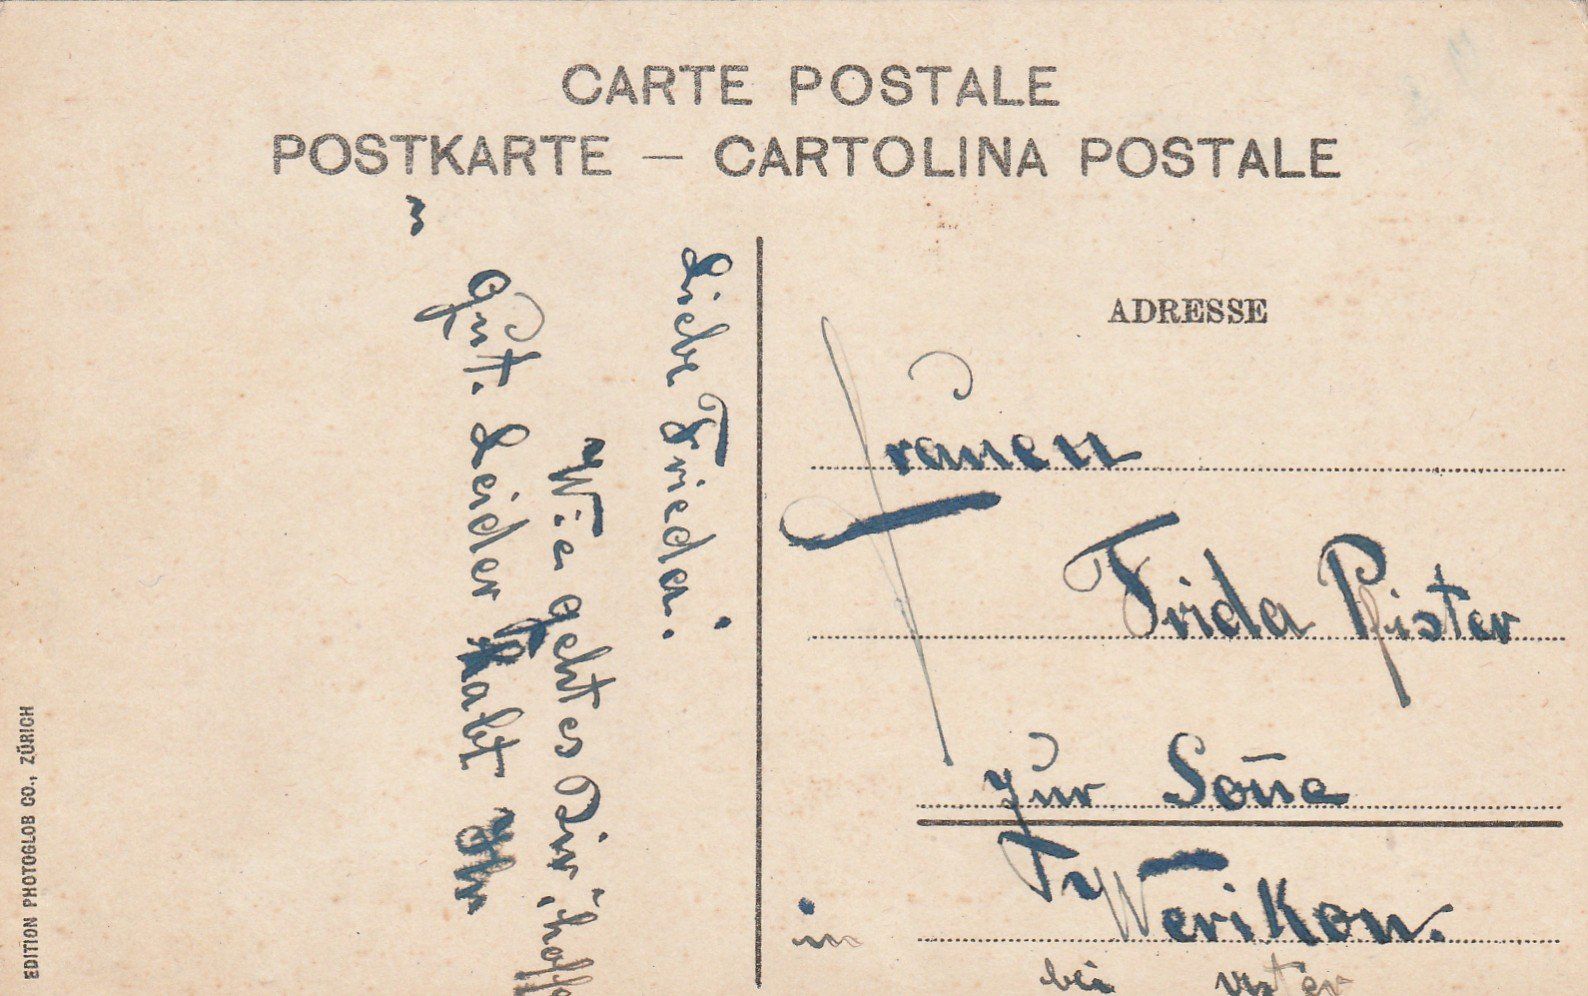 CARTE POSTALE
POSTKARTE — CARTOLINA POSTALE
Liebe Frieda.
Wie geht es Dir, hoffe
Gut. Leider habt Ihr
ADRESSE
Frauen
Frida Pfister
zur Soñe
in Werikon.
bei Uster
EDITION PHOTOGLOB CO., ZÜRICH